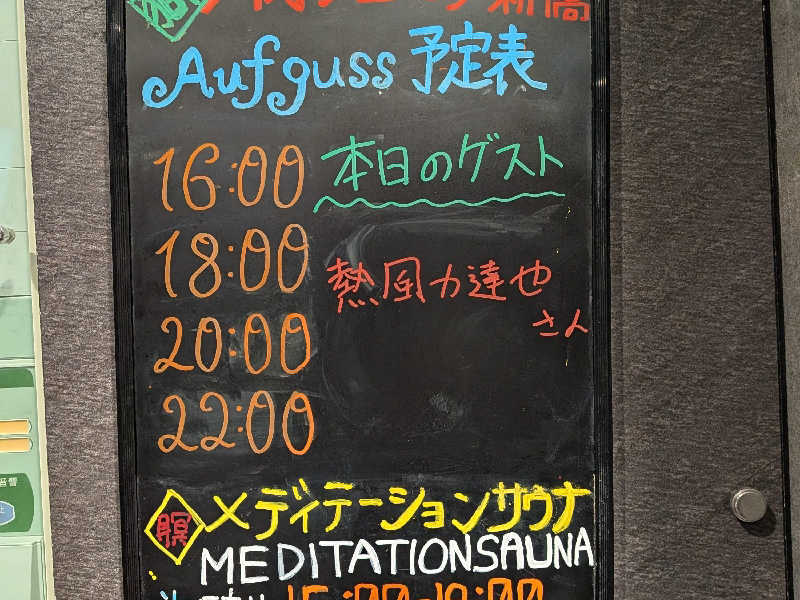 新橋
Aufguss 予定表
16:00 本日のゲスト
18:00 熱風力達也
さん
20:00
22:00
瞑 メディテーションサウナ
MEDITATIONSAUNA